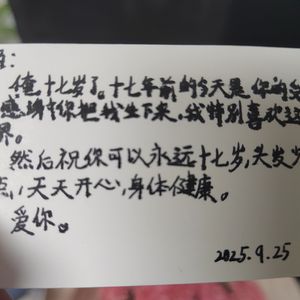 ：
俺十七岁了。十七年前的今天是你的
感谢你把我生下来。我特别喜欢这
界。
然后祝你可以永远十七岁，头发少
点，天天开心，身体健康。
爱你。
2025.9.25